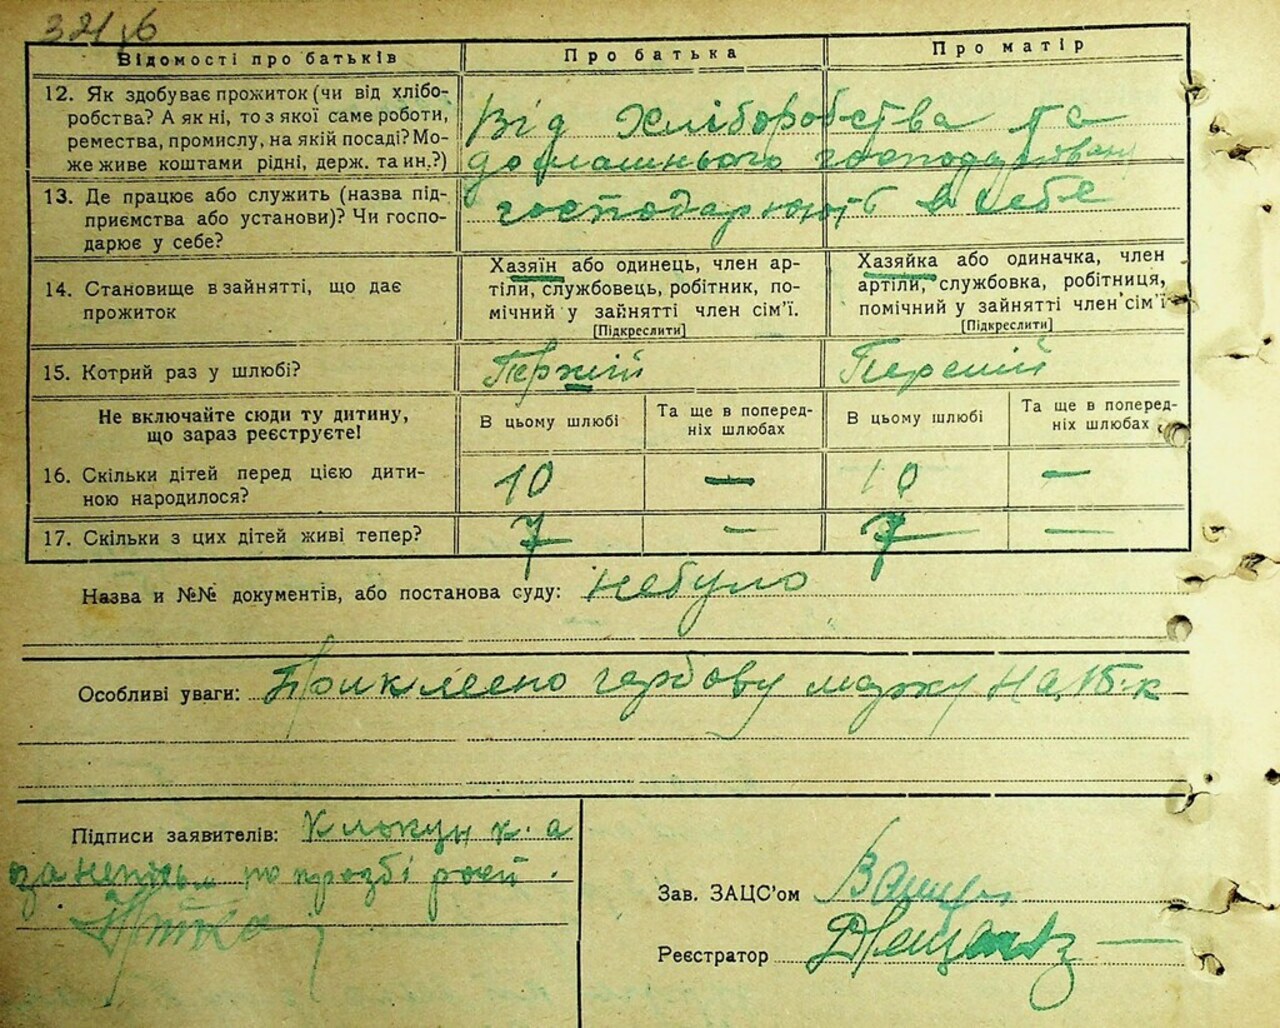 Відомості про батьків Про батька Про матір
12. Як здобуває прожиток (чи від хлібо-
робства? А як ні, то з якої саме роботи,
ремества, промислу, на якій посаді? Мо-
же живе коштами рідні, держ. та ин.?)
Від хліборобства та
домашнього
13. Де працює або служить (назва під-
приємства або установи)? Чи госпо-
дарює у себе?
господарюють в себе
14. Становище в зайнятті, що дає
прожиток
Хазяїн або одинець, член ар-
тіли, службовець, робітник, по-
мічний у зайнятті член сім'ї.
[Підкреслити]
Хазяйка або одиначка, член
артіли, службовка, робітниця,
помічний у зайнятті член сім'ї
[Підкреслити]
15. Котрий раз у шлюбі? Перший Перший
Не включайте сюди ту дитину,
що зараз реєструєте!
В цьому шлюбі
Та ще в поперед-
ніх шлюбах
В цьому шлюбі
Та ще в поперед-
ніх шлюбах
16. Скільки дітей перед цією дити-
ною народилося?
10 — 10 —
17. Скільки з цих дітей живі тепер? 7 — 7 —
Назва и №№ документів, або постанова суду: небуло
Особливі уваги: Приклеєно гербову марку на 15-к
Підписи заявителів: Клокун к. а
по прозбі
Зав. ЗАЦС'ом
Реєстратор